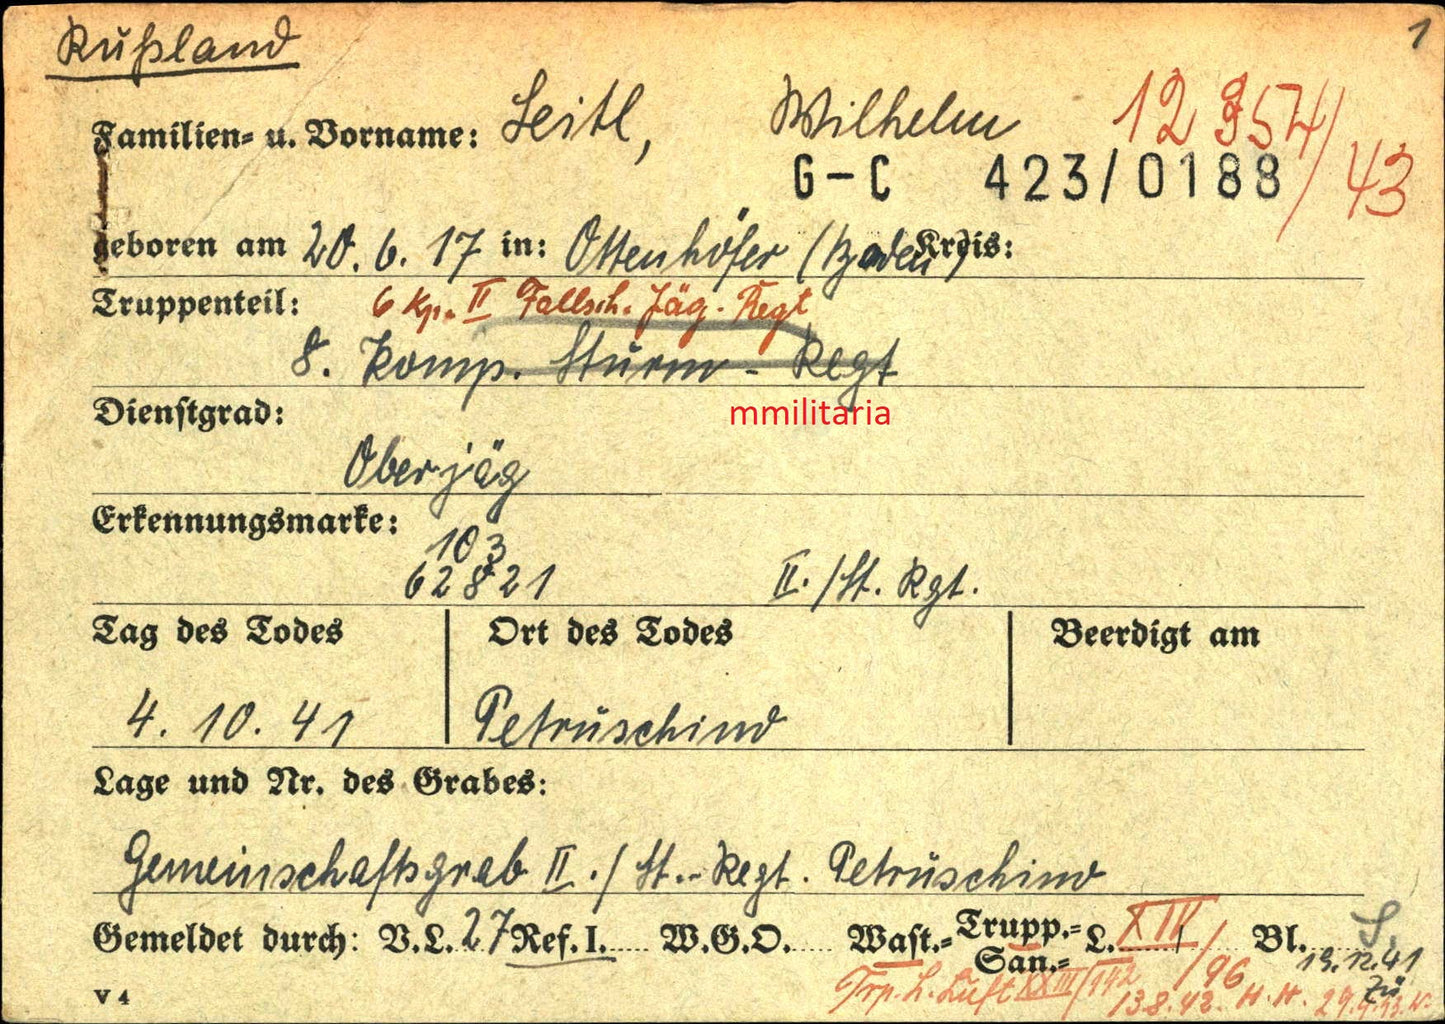 1
Rußland
Familien- u. Vorname: Seitl, Wilhelm 12 954/43
G-C 423/0188
geboren am 20. 6. 17 in: Ottenhöfer (Baden) Kreis:
Truppenteil: 6 Kp. II Fallsch. Jäg. Regt
8. Komp. Sturm-Regt
Dienstgrad:
mmilitaria
Oberjäg
Erkennungsmarke:
103
62821 II./St. Rgt.
Tag des Todes Ort des Todes Beerdigt am
4. 10. 41 Petruschino
Lage und Nr. des Grabes:
Gemeinschaftsgrab II./St.-Regt. Petruschino
Gemeldet durch: V.L. 27 Ref. I. W.G.O. Wast.- Trupp.- San.- L. XIV/96 Bl. S.
19.12.41
Zü
V 4 Trp. L. Luft XXIII/142 13.8.42. H.H.